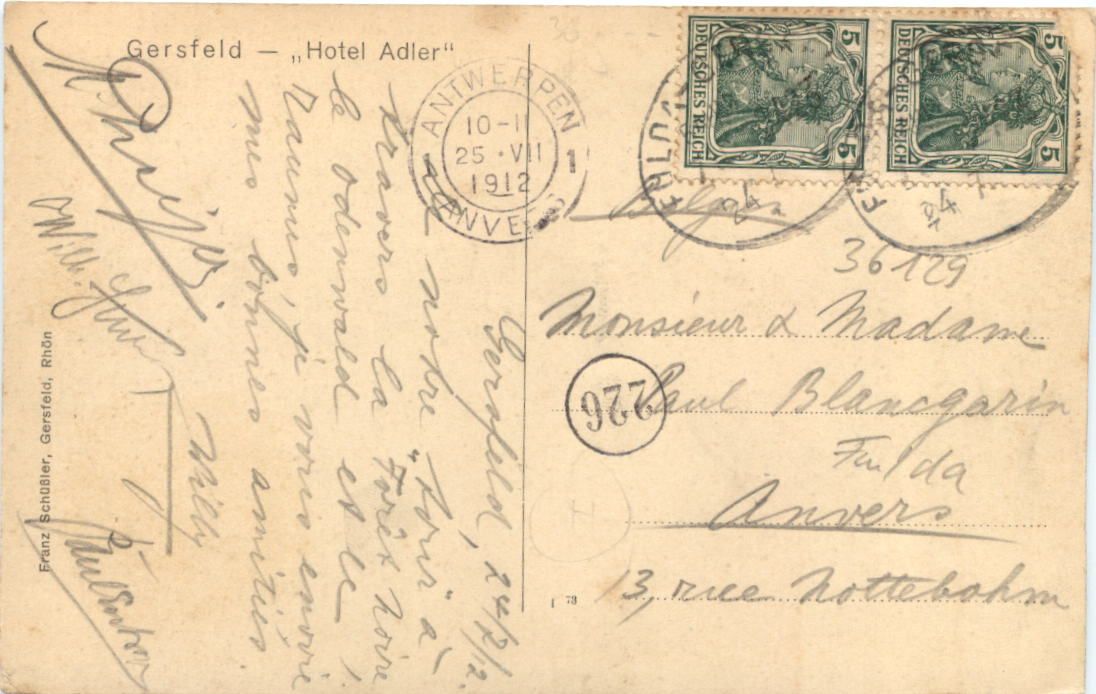 Gersfeld — „Hotel Adler“
ANTWERPEN
10-11
25 · VII
1912
1
ANVERS
5 DEUTSCHES REICH 5
5 DEUTSCHES REICH 5
Gersfeld, 24/7/12.
notre "tour" à
travers la Forêt noire
le Odenwald et le
Taunus, je vous envoie
mes bonnes amitiés.
Willy
Belgien
36129
Monsieur & Madame
Paul Blancgarin
226
Anvers
13, rue Nottebohm
73
Franz Schüßler, Gersfeld, Rhön